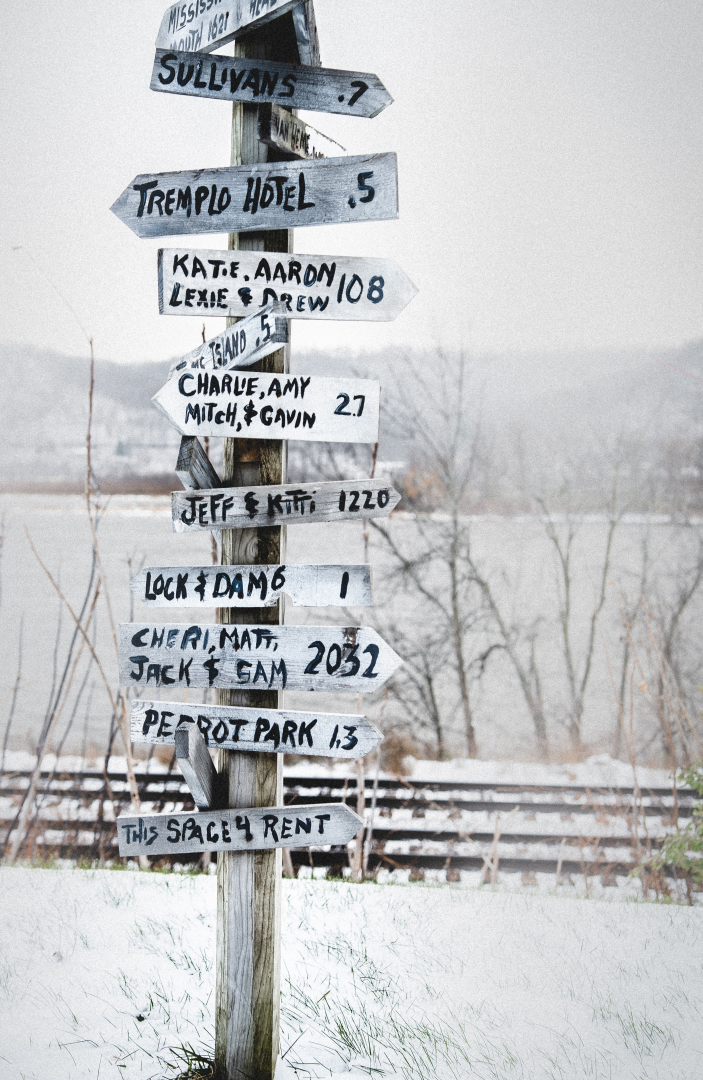 MISSISSIPPI HEAD
MOUTH 1621
SULLIVANS .7
TREMPLO HOTEL .5
KATIE, AARON
LEXIE & DREW 108
ISLAND .5
CHARLIE, AMY
MITCH, & GAVIN 27
JEFF & KITTI 1220
LOCK & DAM 6 1
CHERI, MATT,
JACK & SAM 2032
PERROT PARK 1.3
THIS SPACE 4 RENT